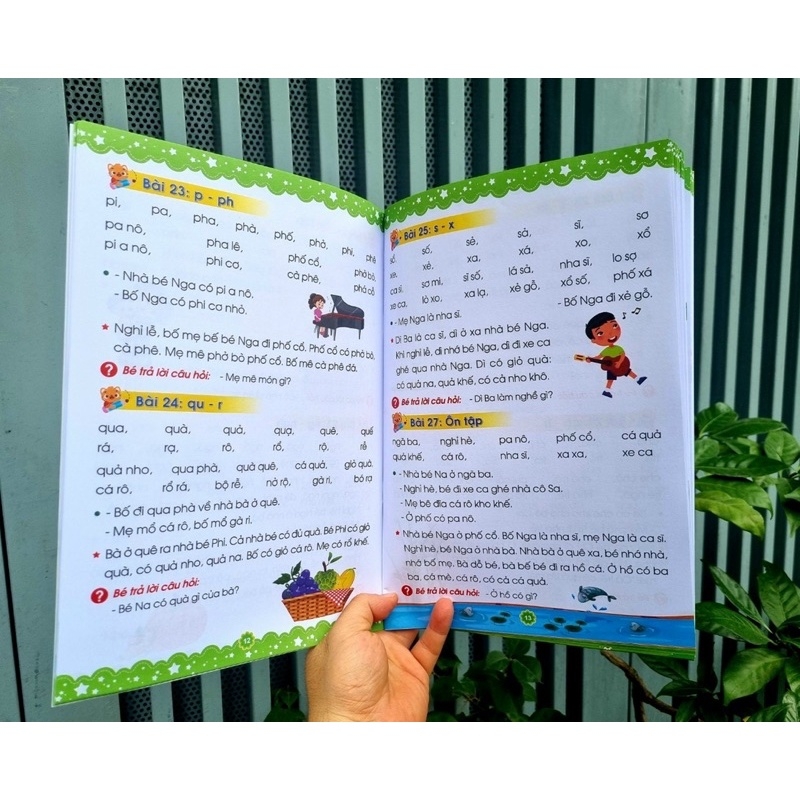 Bài 23: p - ph
pi, pa, pha, phà, phố, phở, phi, phê
pa nô, pha lê, phố cổ, phở bò,
pi a nô, phi cơ, cà phê, phá cỗ
- Nhà bé Nga có pi a nô.
- Bố Nga có phi cơ nhỏ.
Nghỉ lễ, bố mẹ bế bé Nga đi phố cổ. Phố cổ có phở bò,
cà phê. Mẹ mê phở bò phố cổ. Bố mê cà phê đá.
Bé trả lời câu hỏi: - Mẹ mê món gì?
Bài 24: qu - r
qua, quà, quả, quạ, quê, quế
rá, rạ, rô, rổ, rộ, rễ
quả nho, qua phà, quà quê, cá quả, giỏ quả.
cá rô, rổ rá, bộ rễ, nở rộ, gà ri, bó rạ
- Bố đi qua phà về nhà bà ở quê.
- Mẹ mổ cá rô, bố mổ gà ri.
Bà ở quê ra nhà bé Phi. Cả nhà bé có đủ quà. Bé Phi có giỏ
quả, có quả nho, quả na. Bố có giỏ cá rô. Mẹ có rổ khế.
Bé trả lời câu hỏi:
- Bé Na có quà gì của bà?
12
Bài 25: s - x
sổ, số, sẻ, sả, sĩ, sơ
xe, xẻ, xa, xá, xo, xổ
ca sĩ, sơ mi, sĩ số, lá sả, nha sĩ, lo sợ
xe ca, lò xo, xa lạ, xẻ gỗ, xổ số, phố xá
- Mẹ Nga là nha sĩ. - Bố Nga đi xẻ gỗ.
Dì Ba là ca sĩ, dì ở xa nhà bé Nga.
Khi nghỉ lễ, dì nhớ bé Nga, dì đi xe ca
ghé qua nhà Nga. Dì có giỏ quà:
có quả na, quả khế, có cả nho khô.
Bé trả lời câu hỏi: - Dì Ba làm nghề gì?
Bài 27: Ôn tập
ngã ba, nghỉ hè, pa nô, phố cổ, cá quả
quả khế, cà rô, nha sĩ, xa xa, xe ca
- Nhà bé Nga ở ngã ba.
- Nghỉ hè, bé đi xe ca ghé nhà cô Sa.
- Mẹ bê đĩa cá rô kho khế.
- Ở phố có pa nô.
Nhà bé Nga ở phố cổ. Bố Nga là nha sĩ, mẹ Nga là ca sĩ.
Nghỉ hè, bé Nga ở nhà bà. Nhà bà ở quê xa, bé nhớ nhà,
nhớ bố mẹ. Bà dỗ bé, bà bế bé đi ra hồ cá. Ở hồ có ba
ba, cá mè, cá rô, có cả cá quả.
Bé trả lời câu hỏi: - Ở hồ có gì?
13